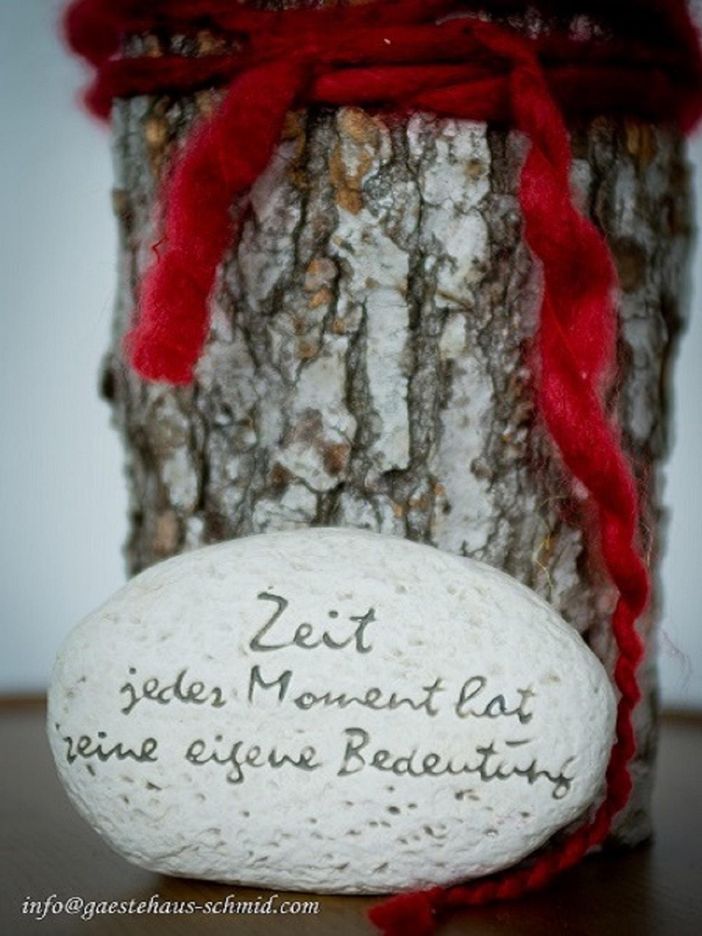 Zeit
jeder Moment hat
seine eigene Bedeutung
info@gaestehaus-schmid.com